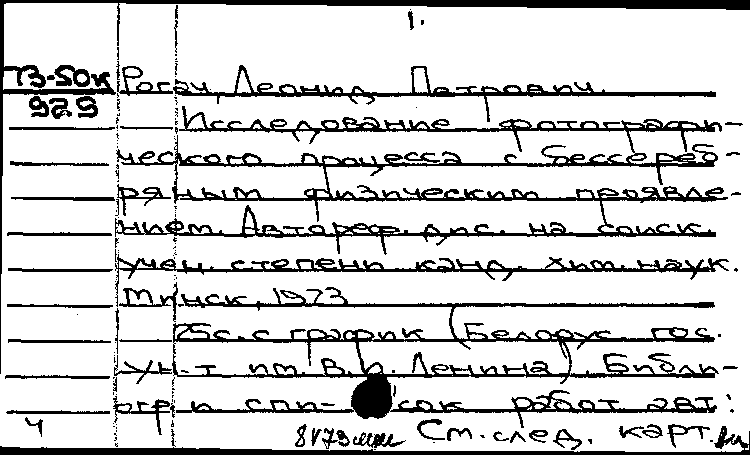 1.
73-50к
929
Рогач, Леонид Петрович.
Исследование фотографи-
ческого процесса с бессереб-
ряным физическим проявле-
нием. Автореф. дис. на соиск.
учен. степени канд. хим. наук.
Минск, 1973
25с. с график (Белорус. гос.
ун-т им. В.И. Ленина). Библи-
огр и спи- сок работ авт:
Ч См. след. карт.